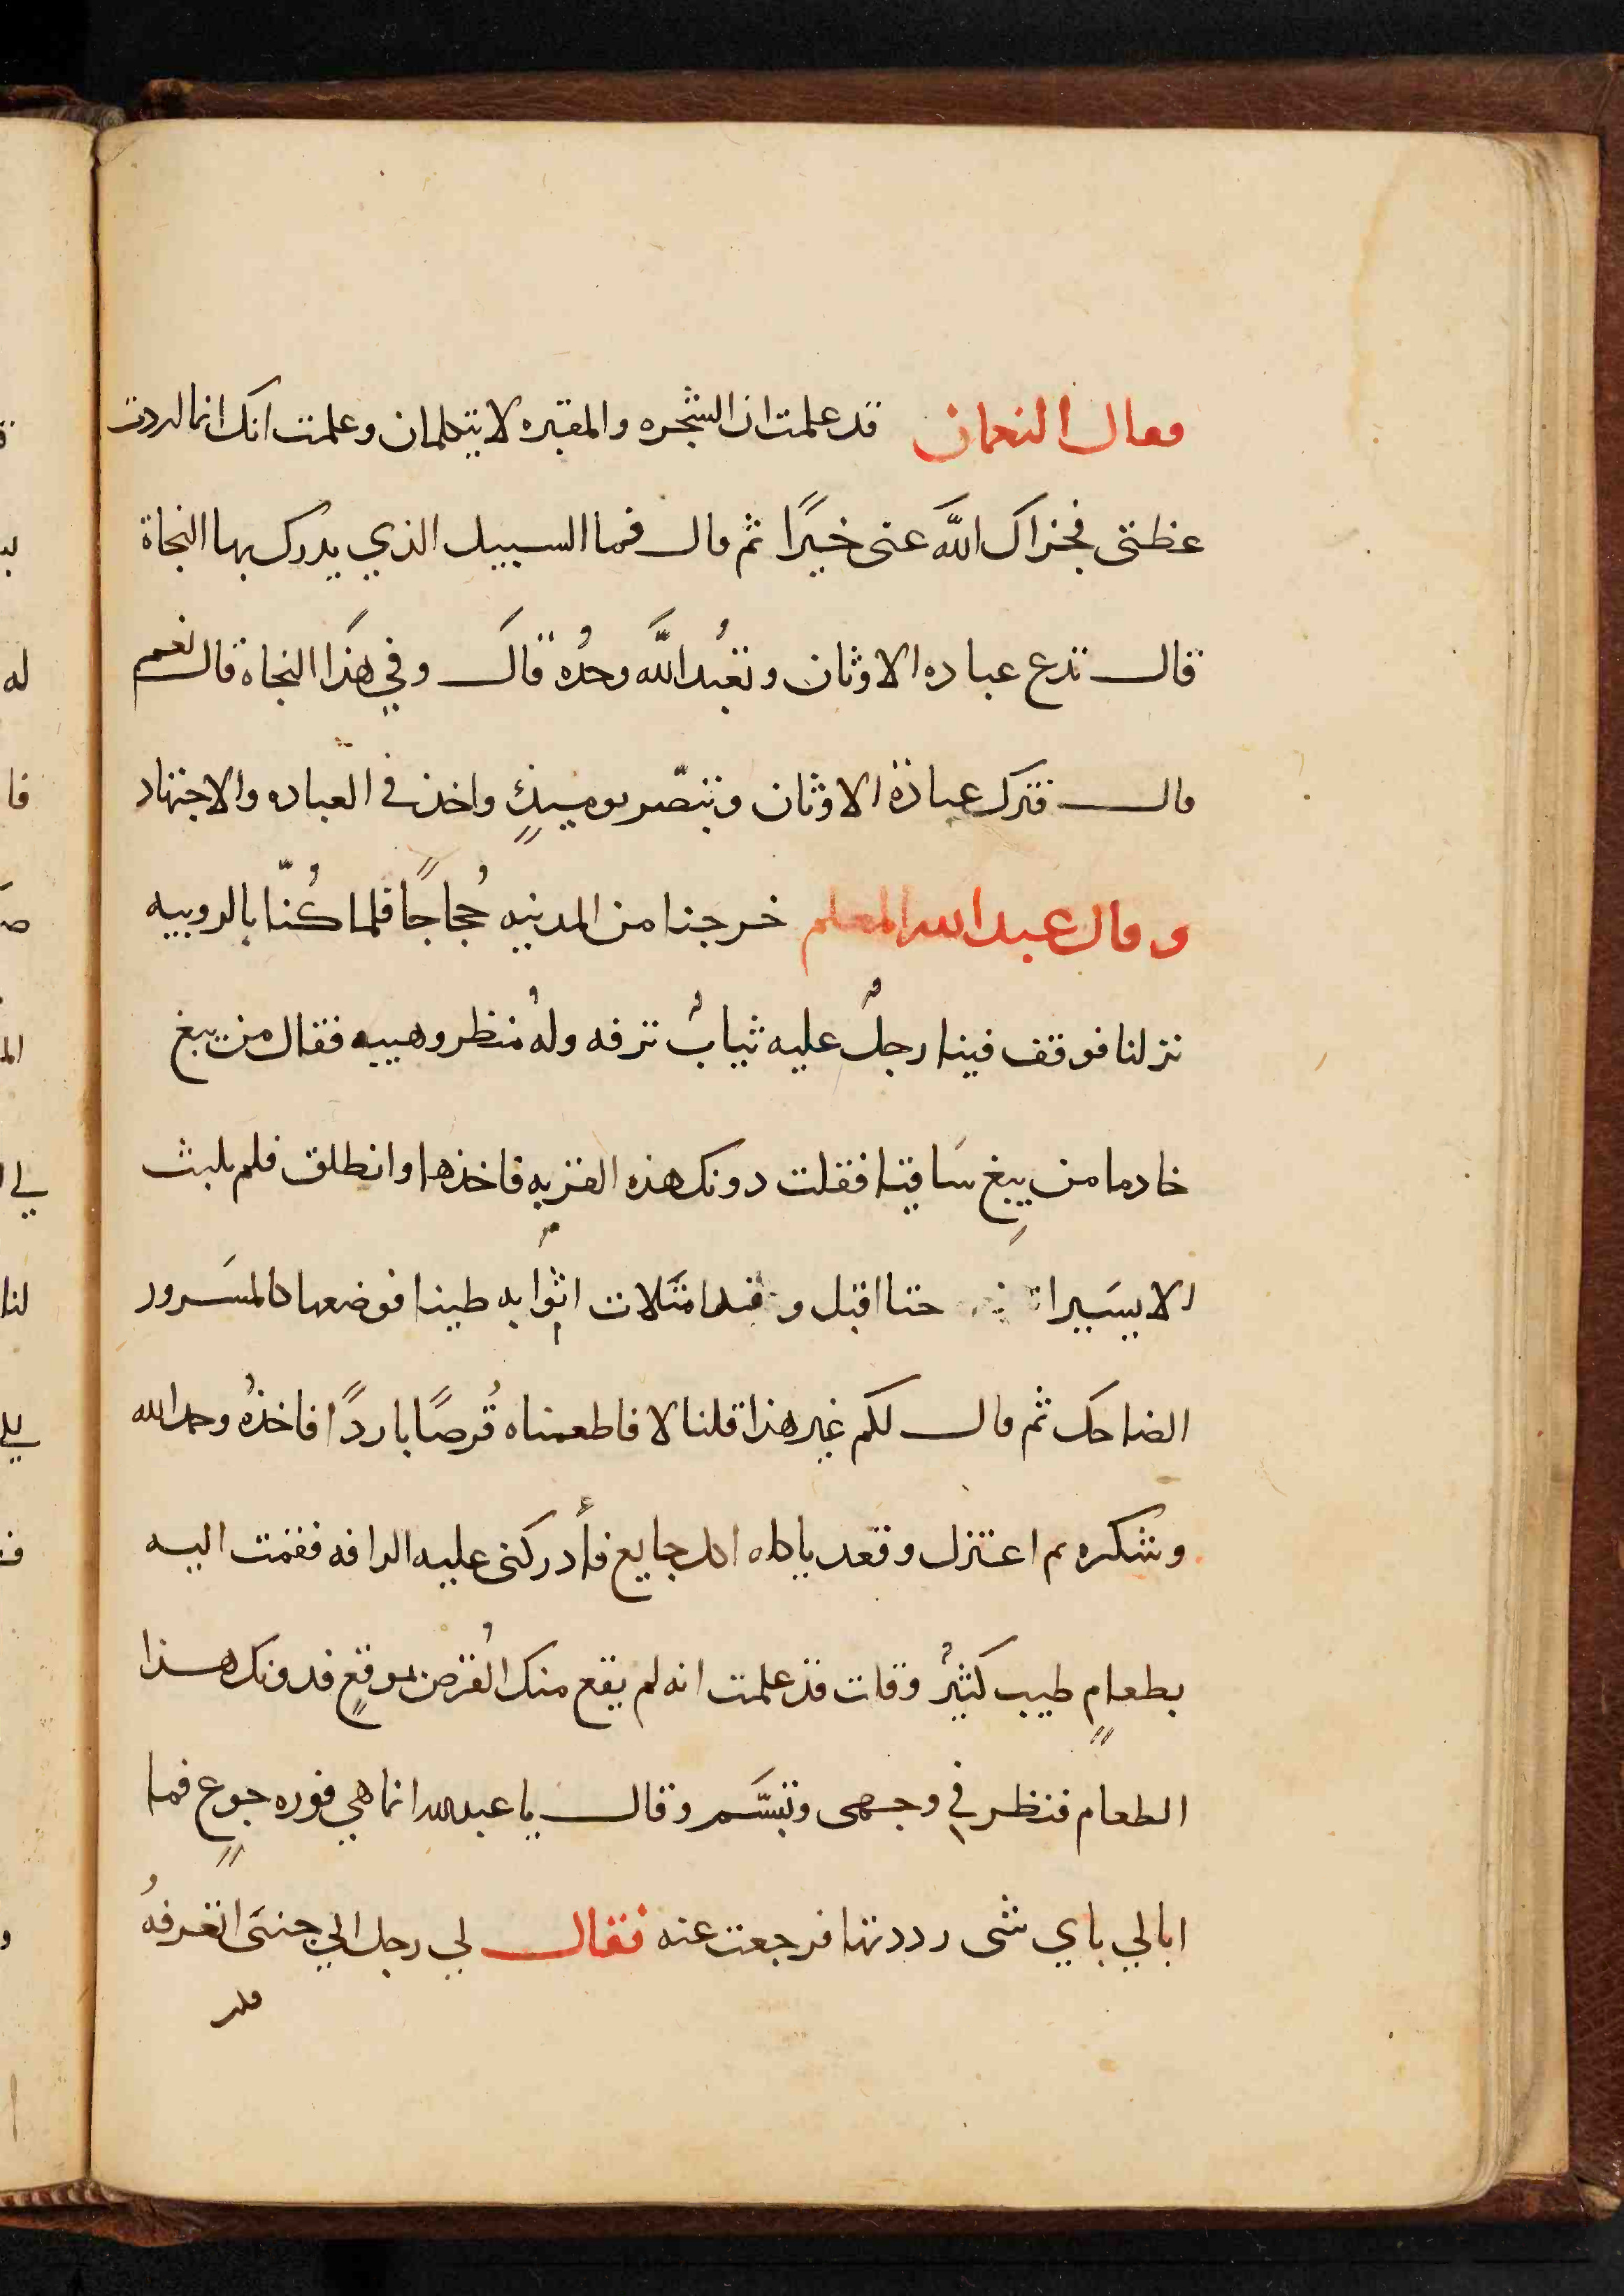 فقال النعمان قد علمت ان الشجره والمقبره لا يتكلمان وعلمت انك انما اردت
عظتى فجزاك اللَّه عنى خيرًا ثم قال فما السبيل الذي يدرك بها النجاة
قال تدع عباده الاوثان وتعبُد اللَّه وحدُه قال وفي هذا النجاه قال نعم
قال فترك عبادة الاوثان وتنصّر يوميذٍ واخذ في العباده والاجتهاد
وقال عبد الله المعلم خرجنا من المدينه حُجاجًا فلما كُنّا بالرويبه
نزلنا فوقف فينا رجلٌ عليه ثيابٌ نزفه ولهُ منظر وهيبه فقال من يبغ
خادما من يبغِ سَاقيا فقلت دونك هذه القربه فاخذها وانطلق فلم يلبث
الا يسَيرا حتا اقبل وقد امتَلات اثوابه طينا فوضعها كالمسَرور
الضاحك ثم قال لكم غير هذا قلنا لا فاطعمناه قُرصًا باردًا فاخذهُ وحمد الله
وشكره ثم اعتزل وقعد ياكله اكل جايع فأدركنى عليه الرافه فقمت اليه
بطعامٍ طيب كثيرٌ وقلت قد علمت انه لم يقع منك القُرص بموقعٍ فدونك هذا
الطعام فنظر في وجهى وتبسَّم وقال يا عبد الله انما هي فوره جوعٍ فما
ابالي باي شى رددتها فرجعت عنه فقال لي رجل الي جنبَى اتعرفهُ
قلت